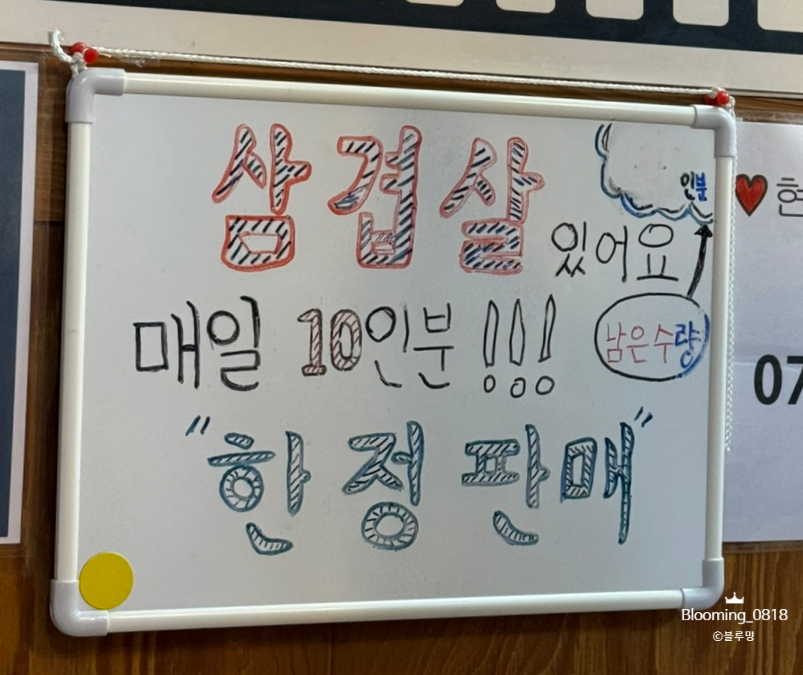 삼겹살
인분
있어요
매일 10인분 !!!
남은수량
"한정판매"
♥ 현
07
Blooming_0818
©블루밍